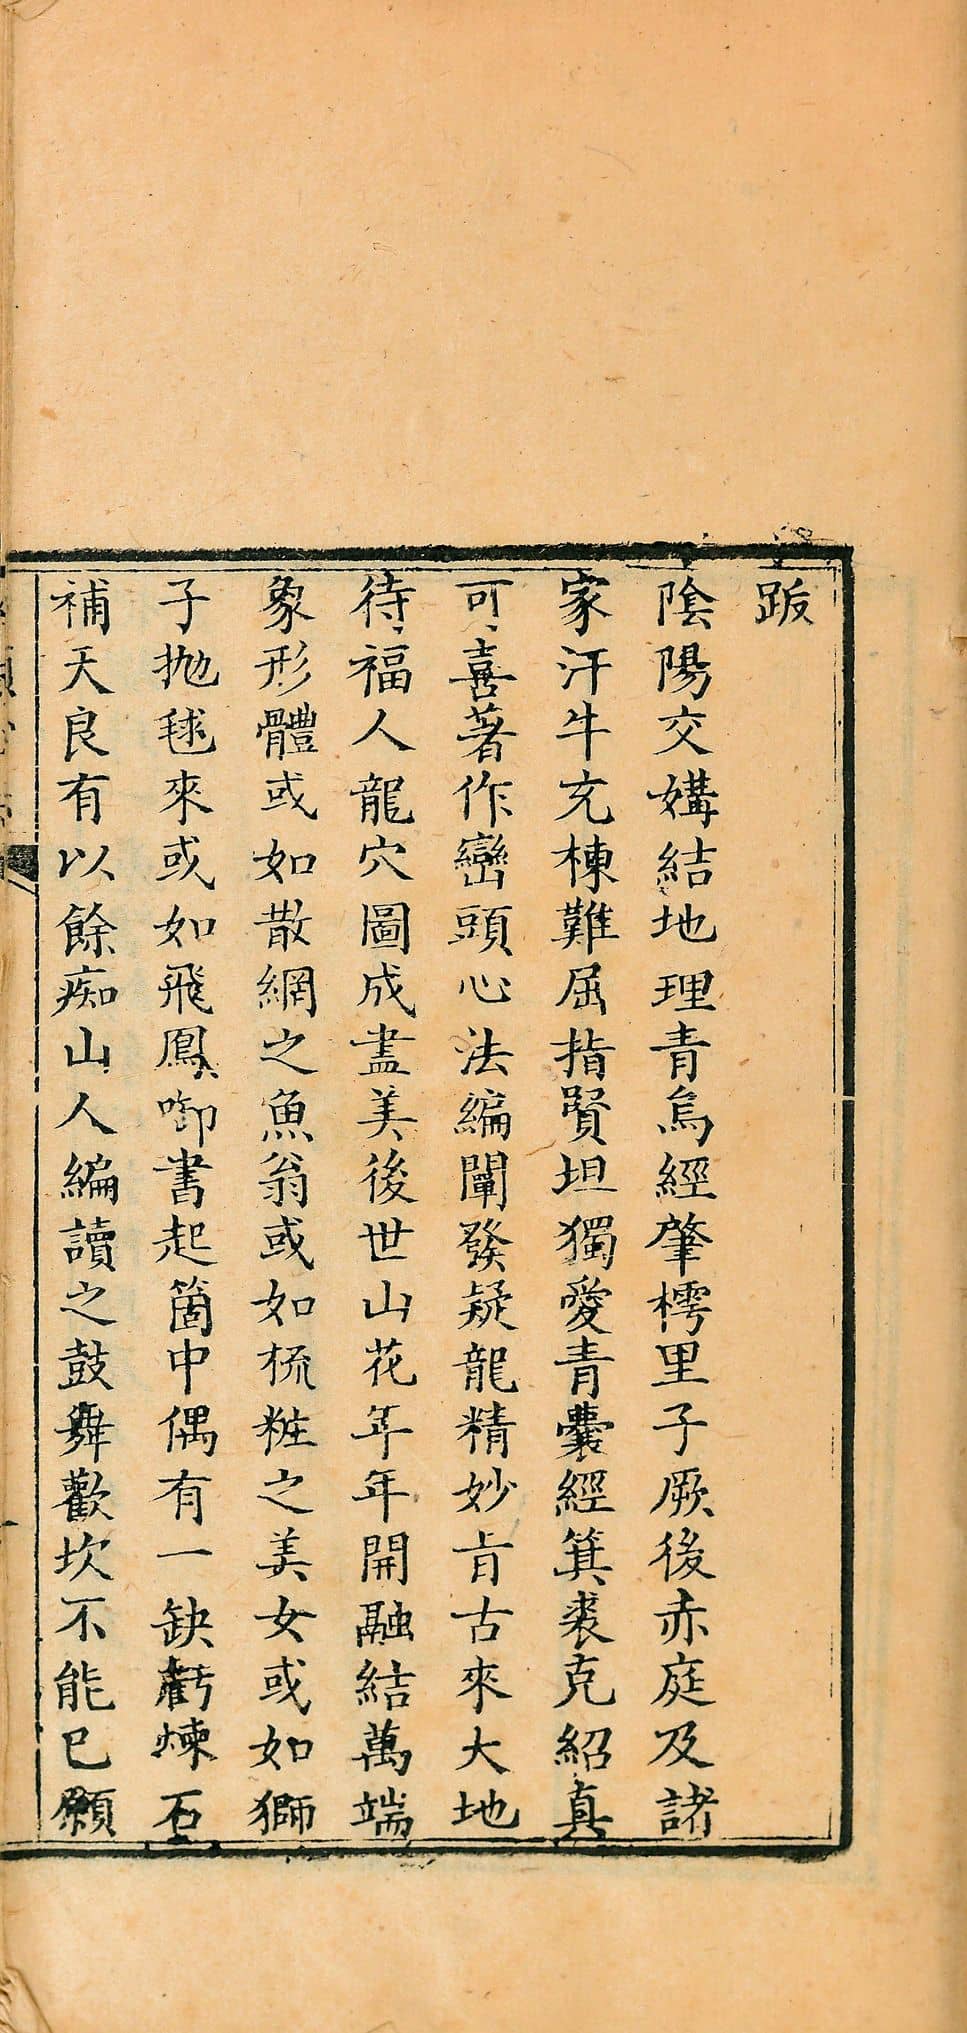 跋
陰陽交媾結地理青烏經肇樗里子厥後赤庭及諸
家汗牛充棟難屈指賢坦獨愛青囊經箕裘克紹真
可喜著作巒頭心法編闡發疑龍精妙肯古來大地
待福人龍穴圖成盡美後世山花年年開融結萬端
象形體或如散網之魚翁或如梳粧之美女或如獅
子拋毬來或如飛鳳啣書起箇中偶有一缺虧煉石
補天良有以餘痴山人編讀之鼓舞歡坎不能已願